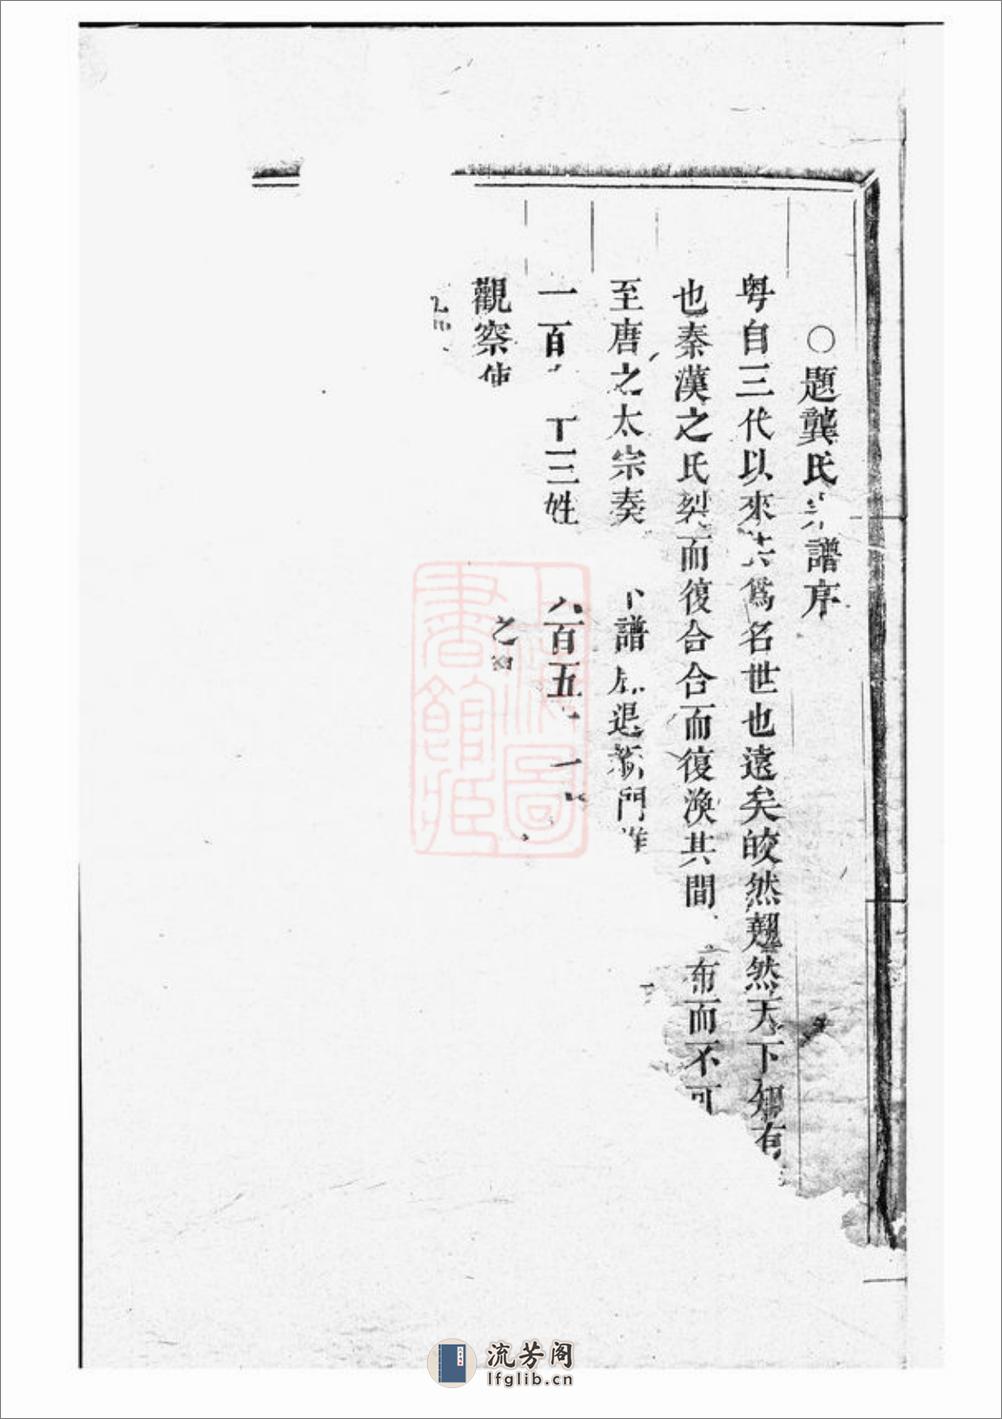 ○題龔氏譜序
粤自三代以來爲名世也遠矣皎然翹然天下知有
也秦漢之氏裂而復合合而復渙其間布而不可
至唐之太宗奏譜退新門
一百三姓百五
觀察使
之
上海圖書館藏
流芳阁
lfglib.cn